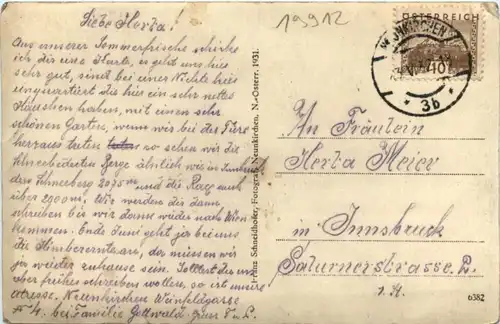 Liebe Herta!
Aus unserer Sommerfrische schicke
ich dir eine Karte, es geht uns hier
sehr gut, sind bei einer Nichte hier
einquartiert die hier ein sehr nettes
Häuschen haben, mit einem sehr
schönen Garten, wenn wir bei der Türe
herzaus treten so sehen wir die
schneebedeckten Berge ähnlich wie in Innsbruck
den Schneeberg 2075m und die Rax auch
über 2000m. Wir werden dir dann
schreiben bis wir dann wieder nach Wien
kommen. Ende Juni geht ja bei uns
die Himbeerernte an, da müssen wir
ja wieder zuhause sein. Solltest du uns
aber früher schreiben wollen, so ist unsere
Adresse. Neunkirchen Weinfeldgasse
bei Familie Gottwald.
Franz Schneidhofer, Fotograf, Neunkirchen, N.-Österr. 1931.
19912
ÖSTERREICH
40
NEUNKIRCHEN
* 3b *
An Fräulein
Herta Meier
in Innsbruck
Saturnerstrasse 2.
1. St.
6382